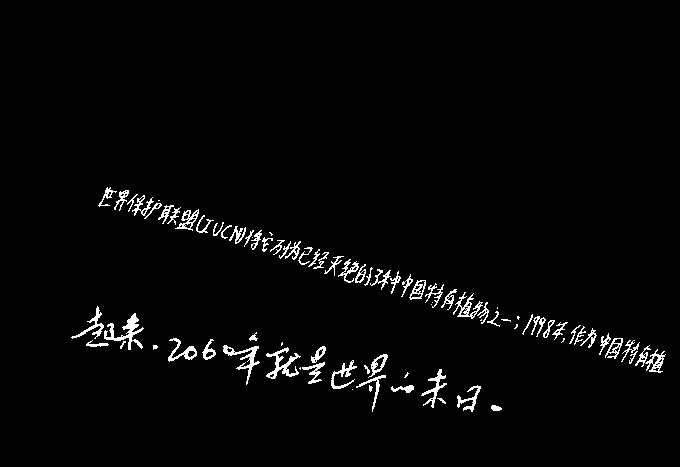 世界保护联盟(IUCN)将它列为已经灭绝的3种中国特有植物之一；1998年,作为中国特有植
起来.2060年就是世界的末日。